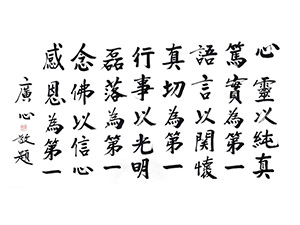 心靈以純真
篤實為第一
語言以關懷
真切為第一
行事以光明
磊落為第一
念佛以信心
感恩為第一
廣心敬題